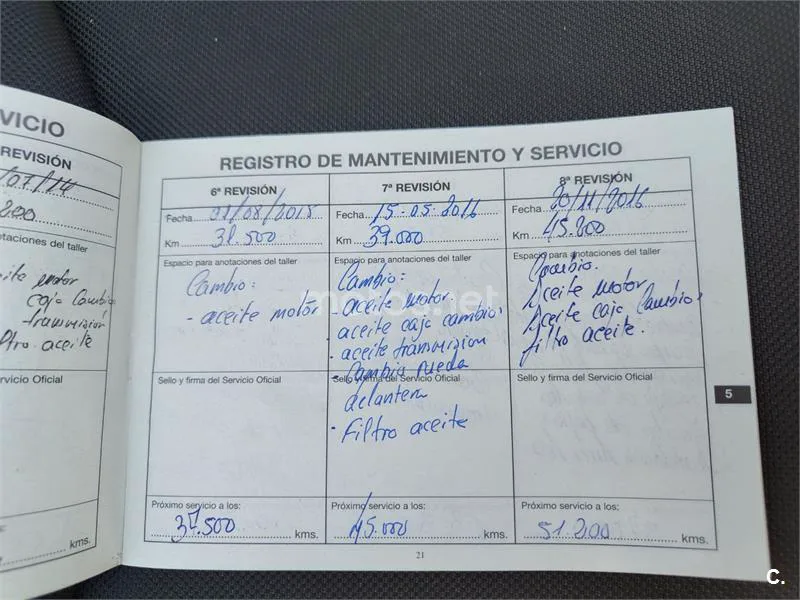 VICIO
REVISIÓN
/07/14
200
otaciones del taller
aceite motor
caja Cambio
transmisión
filtro aceite
rvicio Oficial
kms.
REGISTRO DE MANTENIMIENTO Y SERVICIO
6ª REVISIÓN
Fecha 01/08/2015
Km 31.500
Espacio para anotaciones del taller
Cambio:
- aceite motor
Sello y firma del Servicio Oficial
Próximo servicio a los:
37.500 kms.
7ª REVISIÓN
Fecha 15-05-2016
Km 39.000
Espacio para anotaciones del taller
Cambio:
- aceite motor
aceite caja cambio
- aceite transmision
- Cambio rueda
Sello y firma del Servicio Oficial
delantera
- Filtro aceite
Próximo servicio a los:
45.000 kms.
8ª REVISIÓN
Fecha 20/11/2016
Km 45.200
Espacio para anotaciones del taller
Cambio.
Aceite motor
Aceite caja Cambio
filtro aceite.
Sello y firma del Servicio Oficial
Próximo servicio a los:
51.200 kms.
5
21
motos.net
C.